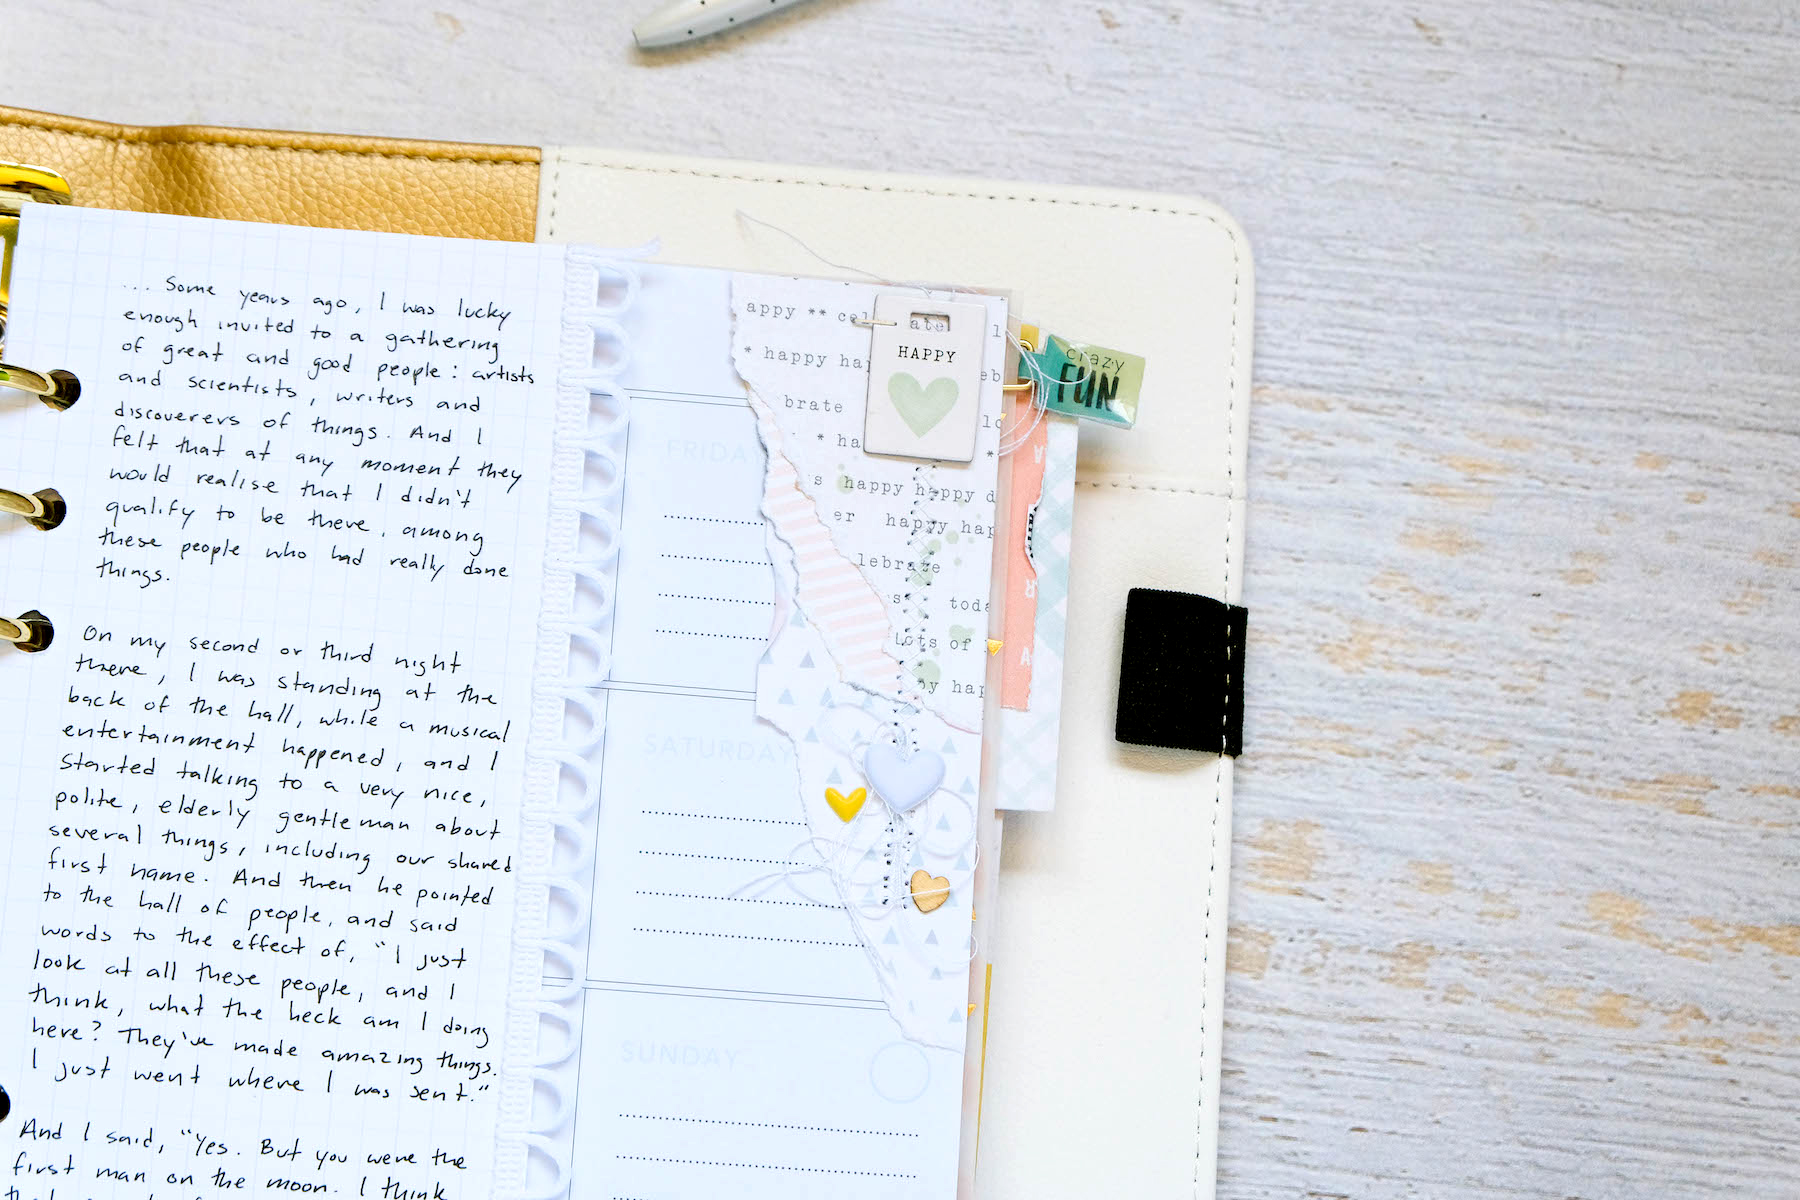 ... Some years ago, I was lucky
enough invited to a gathering
of great and good people: artists
and scientists, writers and
discoverers of things. And I
felt that at any moment they
would realise that I didn't
qualify to be there, among
these people who had really done
things.
On my second or third night
there, I was standing at the
back of the hall, while a musical
entertainment happened, and I
started talking to a very nice,
polite, elderly gentleman about
several things, including our shared
first name. And then he pointed
to the hall of people, and said
words to the effect of, "I just
look at all these people, and I
think, what the heck am I doing
here? They've made amazing things.
I just went where I was sent."
And I said, "Yes. But you were the
first man on the moon. I think
FRIDAY
SATURDAY
SUNDAY
appy ** cel ate l
* happy hap eb
brate
* ha *
s happy happy d
er happy hap
lebrate
us toda
Lots of
py hap
HAPPY
crazy
FUN
A
R
A